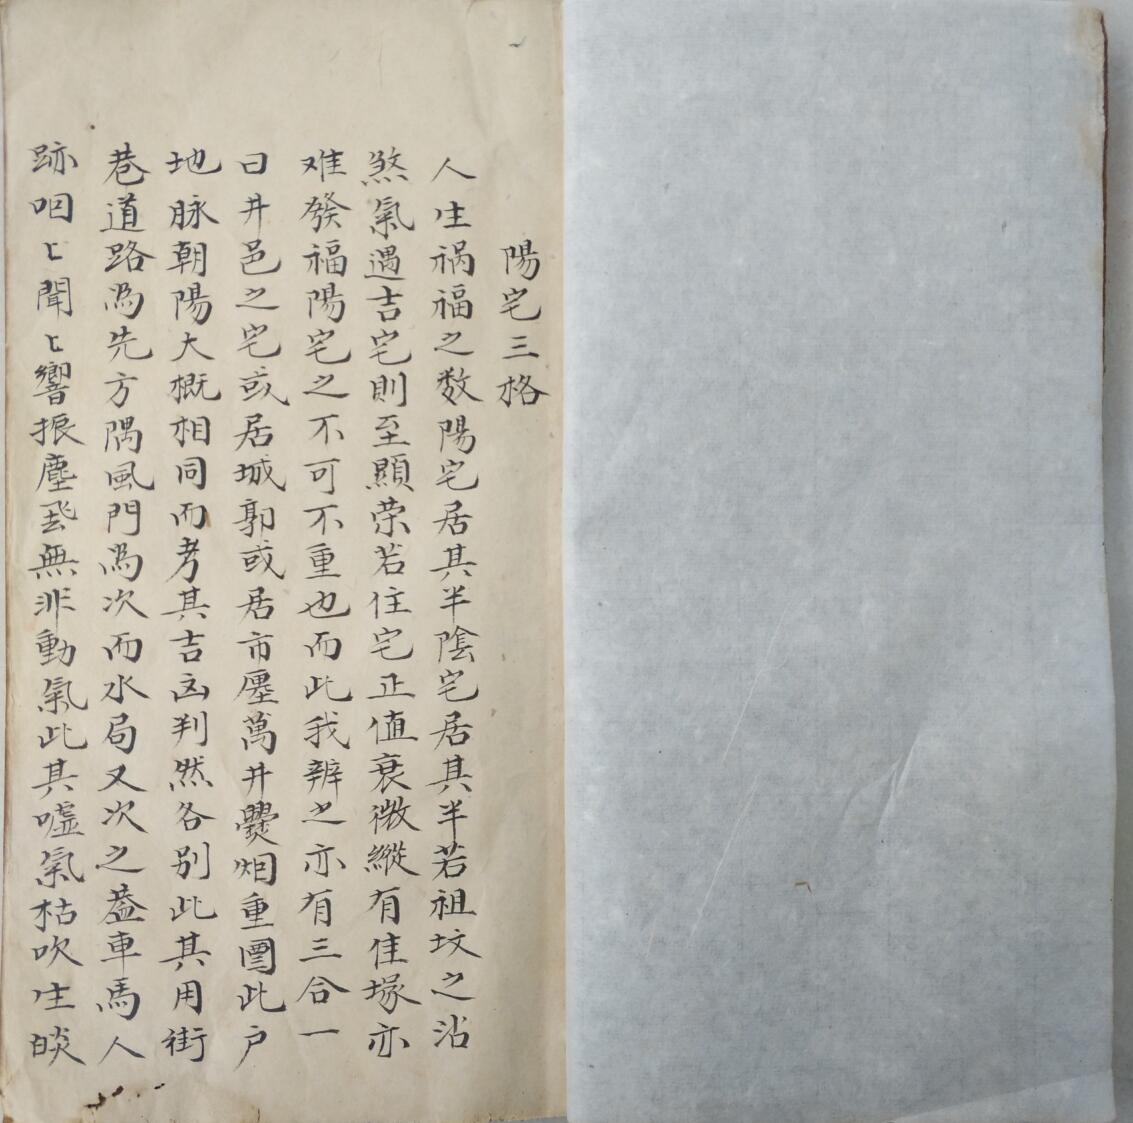 陽宅三格
人生祸福之数陽宅居其半陰宅居其半若祖坟之沾
煞氣遇吉宅則至顯荣若住宅正值衰微縱有佳塚亦
难發福陽宅之不可不重也而此我辨之亦有三合一
曰井邑之宅或居城郭或居市廛萬井爨烟重圍此户
地脉朝陽大概相同而考其吉凶判然各别此其用街
巷道路為先方隅風門為次而水局又次之蓋車馬人
跡咽〻聞〻響振塵飛無非動氣此其嘘氣枯吹生